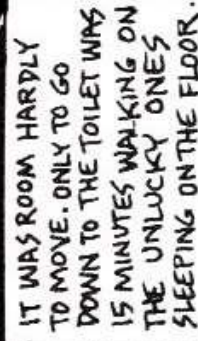 IT WAS ROOM HARDLY
TO MOVE. ONLY TO GO
DOWN TO THE TOILET WAS
15 MINUTES WALKING ON
THE UNLUCKY ONES
SLEEPING ON THE FLOOR.